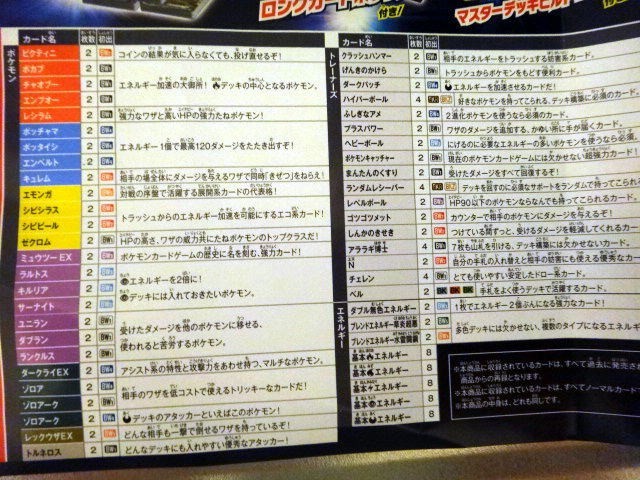 ロングカードボ
付き!
マスターデッキビルド
付き!
カード名 枚数 初出
ポケモン
ビクティニ 2 コインの結果が気に入らなくても、投げ直せるぞ!
ポカブ 2
チャオブー 2 エネルギー加速の大御所! デッキの中心となるポケモン。
エンブオー 2
レシラム 2 強力なワザと高いHPの強力たねポケモン!
ポッチャマ 2
ポッタイシ 2 エネルギー1個で最高120ダメージをたたき出すぞ!
エンペルト 2
キュレム 2 相手の場全体にダメージを与えるワザで同時「きぜつ」をねらえ!
エモンガ 2 対戦の序盤で活躍する展開系カードの代表格!
シビシラス 2
シビビール 2 トラッシュからのエネルギー加速を可能にするエコ系カード!
ゼクロム 2 HPの高さ、ワザの威力共にたねポケモンのトップクラスだ!
ミュウツーEX 2 ポケモンカードゲームの歴史に名を刻む、強力カード!
ラルトス 2
キルリア 2 エネルギーを2倍に!
サーナイト 2 デッキには入れておきたいポケモン。
ユニラン 2
ダブラン 2 受けたダメージを他のポケモンに移せる、
ランクルス 2 使われると苦労するポケモン。
ダークライEX 2 アシスト系の特性と攻撃力をあわせ持つ、マルチなポケモン。
ゾロア 2
ゾロアーク 2 相手のワザを低コストで使えるトリッキーなカードだ!
ゾロアーク 2 デッキのアタッカーといえばこのポケモン!
レックウザEX 2 どんな相手も一撃で倒せるワザを持っているぞ!
トルネロス 2 どんなデッキにも入れやすい優秀なアタッカー!
カード名 枚数 初出
トレーナーズ
クラッシュハンマー 2 相手のエネルギーをトラッシュする妨害系カード。
げんきのかけら 2 トラッシュからポケモンをもどす便利カード。
ダークパッチ 2 エネルギーを加速させるカードだ!
ハイパーボール 4 好きなポケモンを持ってこられる、デッキ構築に必須のカード。
ふしぎなアメ 2 2進化ポケモンを使うなら必須のカード。
プラスパワー 2 ワザのダメージを追加する、かゆい所に手が届くカード。
ヘビーボール 2 にげるのに必要なエネルギーの多いポケモンを使うなら必須。
ポケモンキャッチャー 2 現在のポケモンカードゲームには欠かせない超強力カード!
まんたんのくすり 2 受けたダメージをすべて回復するぞ!
ランダムレシーバー 4 デッキを回すのに必須なサポートをランダムで持ってこられる
レベルボール 2 HP90以下のポケモンならなんでも持ってこられるカード。
ゴツゴツメット 2 カウンターで相手のポケモンにダメージを与えるぞ!
しんかのきせき 2 つけている間ずっと、受けるダメージを軽減してくれるカー
アララギ博士 4 7枚も山札を引ける、デッキ構築には欠かせないカード。
N 2 自分の手札の入れ替えと相手の妨害にも使える優秀なカー
チェレン 4 とても使いやすい安定したドロー系カード。
ベル 2 手札をよく使うデッキで活躍するカード。
エネルギー
ダブル無色エネルギー 2 1枚でエネルギー2個ぶんになる強力なカード!
ブレンドエネルギー草炎超悪 2
ブレンドエネルギー水雷闘鋼 2 多色デッキには欠かせない、複数のタイプになるエネルギー
基本エネルギー 8
基本エネルギー 8
基本エネルギー 8
基本エネルギー 8
基本エネルギー 8
※本商品に収録されているカードは、すべて過去に発売さ
商品からの再録となります。
※本商品に収録されているカードは、すべてノーマルカード
※本商品の中身は、どれも同じです。